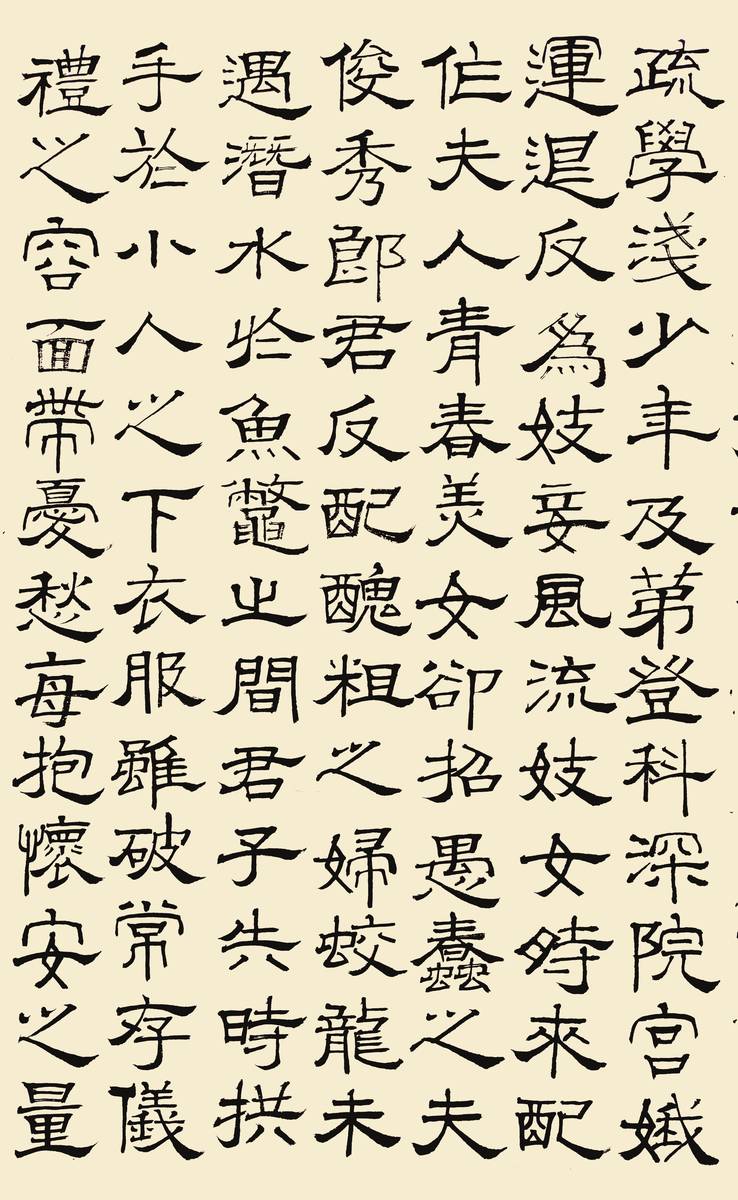 疏學淺少年及苐登科深院宮娥
運退反為妓妾風流妓女時來配
作夫人青春美女卻招愚蠢之夫
俊秀郎君反配醜粗之婦蛟龍未
遇潛水於魚鱉之間君子失時拱
手於小人之下衣服雖破常存儀
禮之容面帶憂愁每抱懷安之量